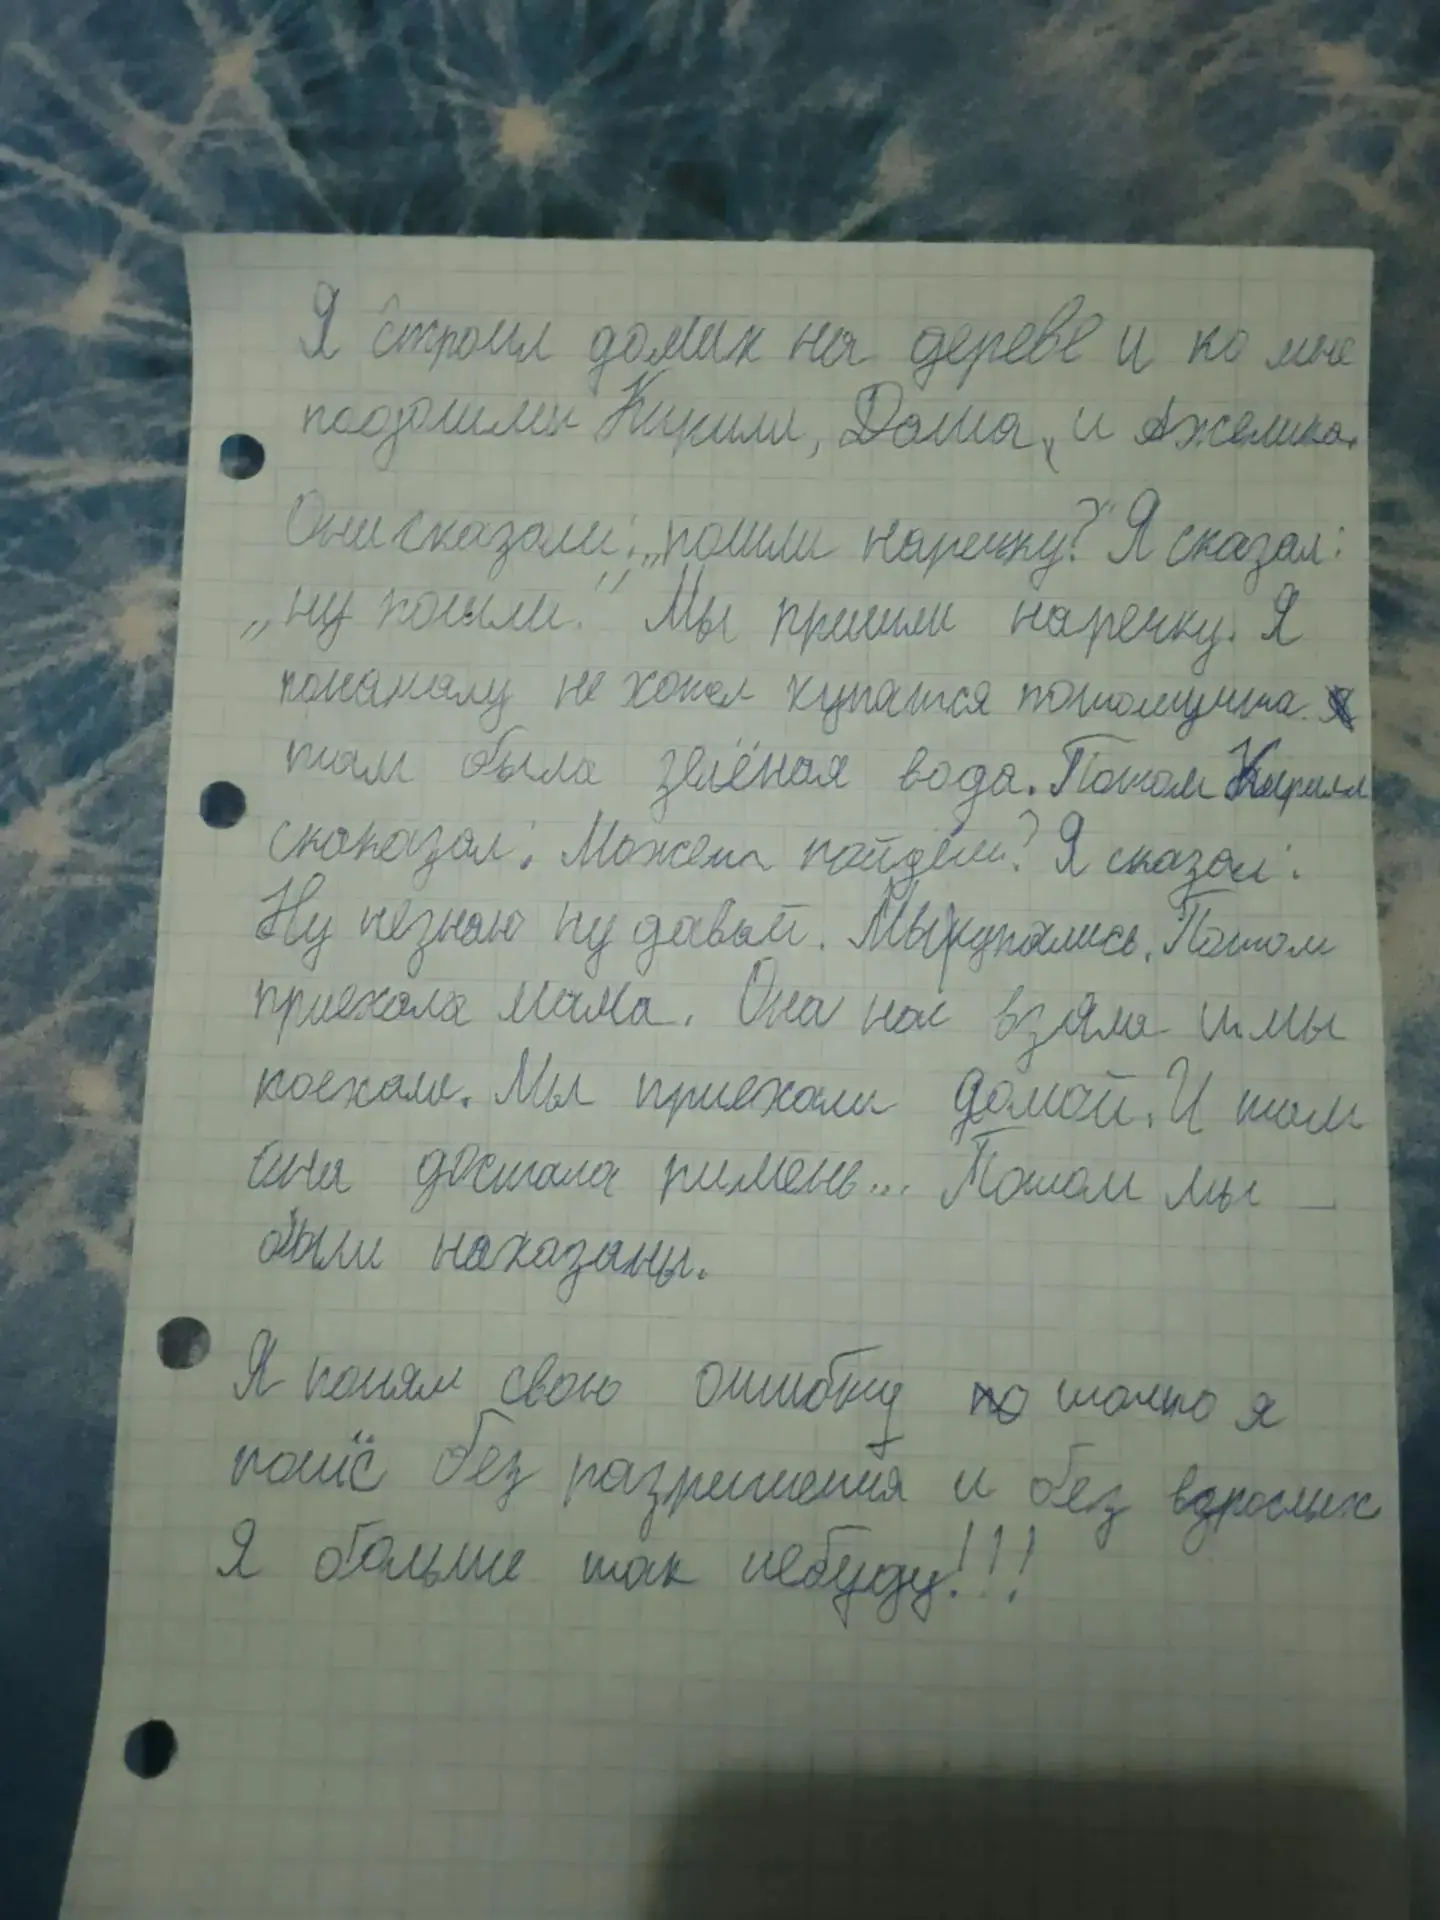 Я строил домик на дереве и ко мне
подошли Кирилл, Даша, и Анжелика.
Они сказали: „пошли наречку?" Я сказал:
„ну пошли." Мы пришли наречку. Я
поначалу не хотел купатся потомушта
там была зелёная вода. Потом Кирилл
скоказал: Может пойдём? Я сказал:
Ну незнаю ну давай. Мы купались. Потом
приехала мама. Она нас взяла и мы
поехали. Мы приехали домой. И там
она достала римень... Потом мы
были наказаны.
Я понял свою ошибку что я
пошёс без разришения и без взрослых
Я больше так небуду!!!